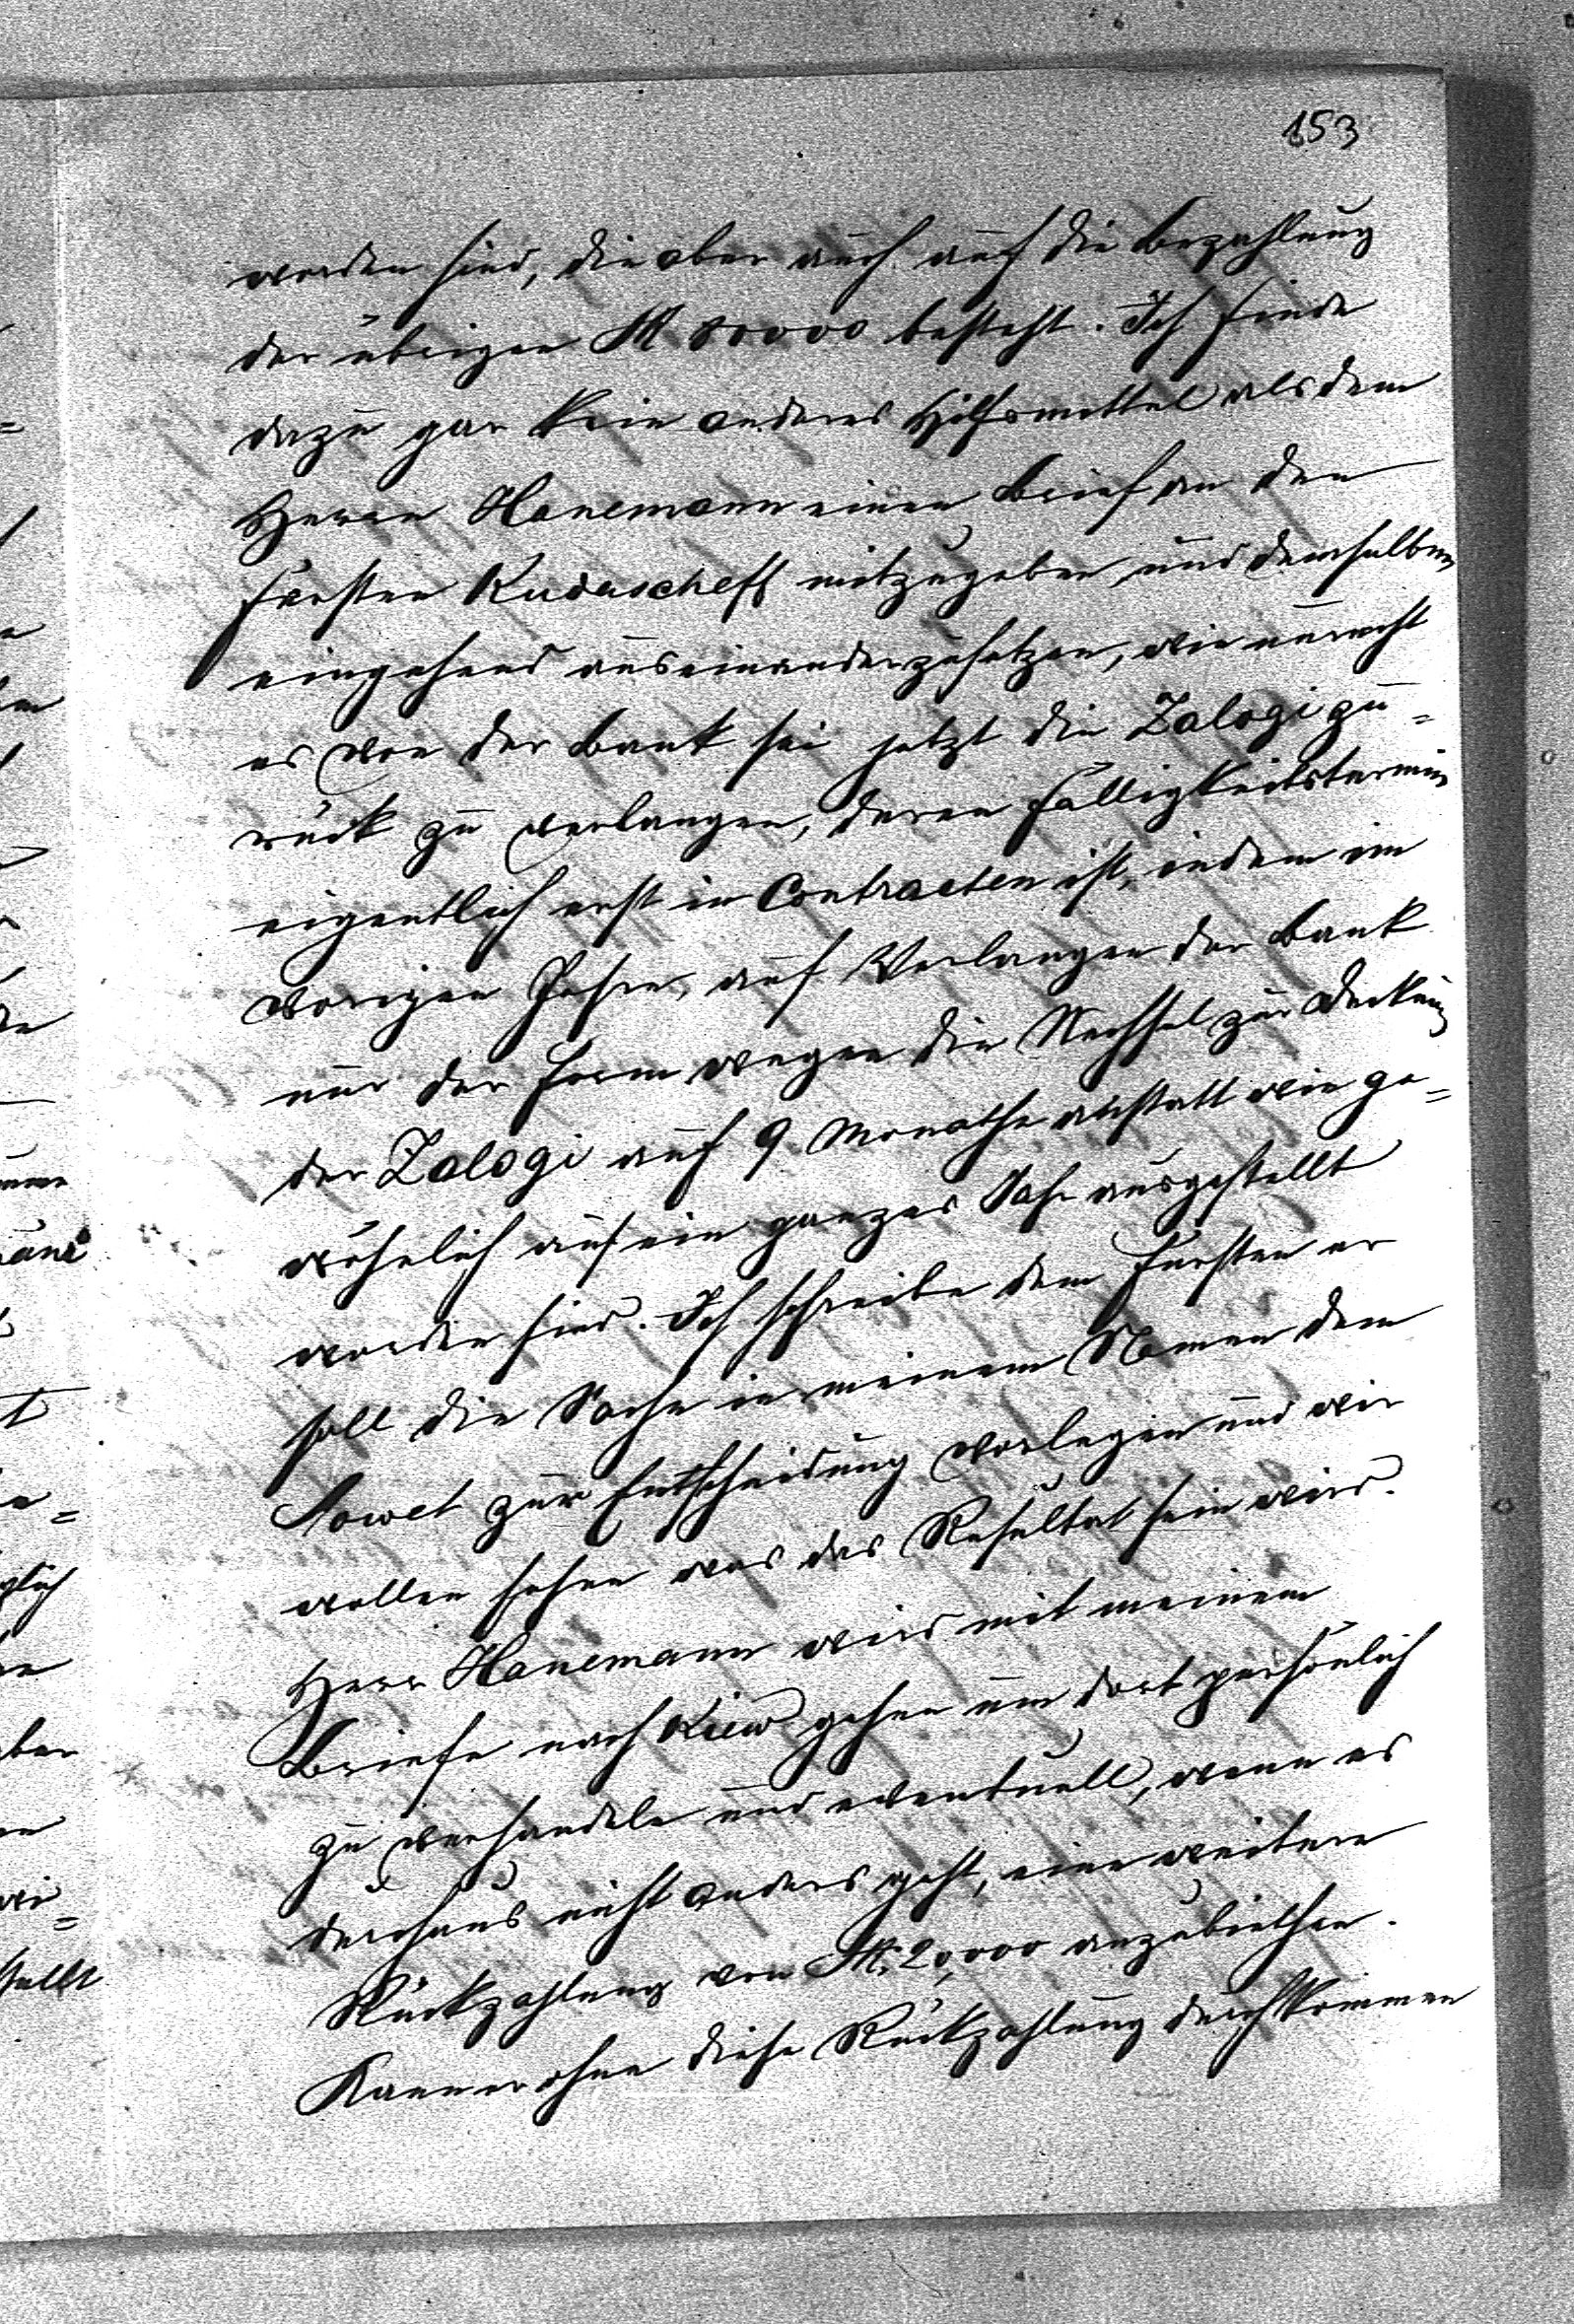 153
worden sind, die aber auch auf die Bezahlung
der übrigen R 80000 besteht. Ich finde
dazu gar kein anderes Hilfsmittel als dem
Herrn Hanemann einen Brief an den
Fürsten Kudascheff mitzugeben und demselben
eingehend auseinanderzusetzen, wie unrecht
es von der Bank sei jetzt die Zalogi zu=
rück zu verlangen, deren Fälligkeitstermin
eigentlich erst in Contracten ist, indem im
vorigen Jahre, auf Verlangen der Bank
nur der Form wegen die Wechsel zur Deckung
der Zalogi auf 9 Monathe anstatt wie ge=
wöhnlich auf ein ganzes Jahr ausgestellt
worden sind. Ich schreibe dem Fürsten er
soll die Sache in meinem Namen dem
Sowet zur Entscheidung vorlegen und wir
wollen sehen was das Resultat sein wird.
Herr Hanemann wird mit meinem
Briefe nach Kiew gehen um dort persönlich
zu verhandeln und eventuell, wenn es
durchaus nicht anders geht, eine weitere
Rückzahlung von R. 20,000 anzubiethen.
Kann er ohne diese Rückzahlung durchkommen